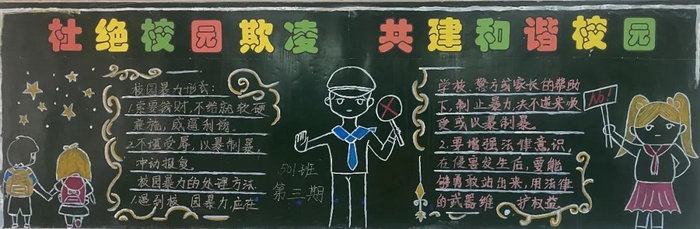 杜绝校园欺凌 共建和谐校园
校园暴力形式:
1.索要钱财,不给就软硬
兼施,威逼利诱。
2.不堪受辱,以暴制暴,
冲动报复。
校园暴力的处理方法
1.遇到校园暴力,应在
501班
第三期
学校、警方或家长的帮助
下,制止暴力,
受或以暴制暴。
2.要增强法律意识,
在侵害发生后,要能
够勇敢站出来,用法律
的武器维 护权益
No!